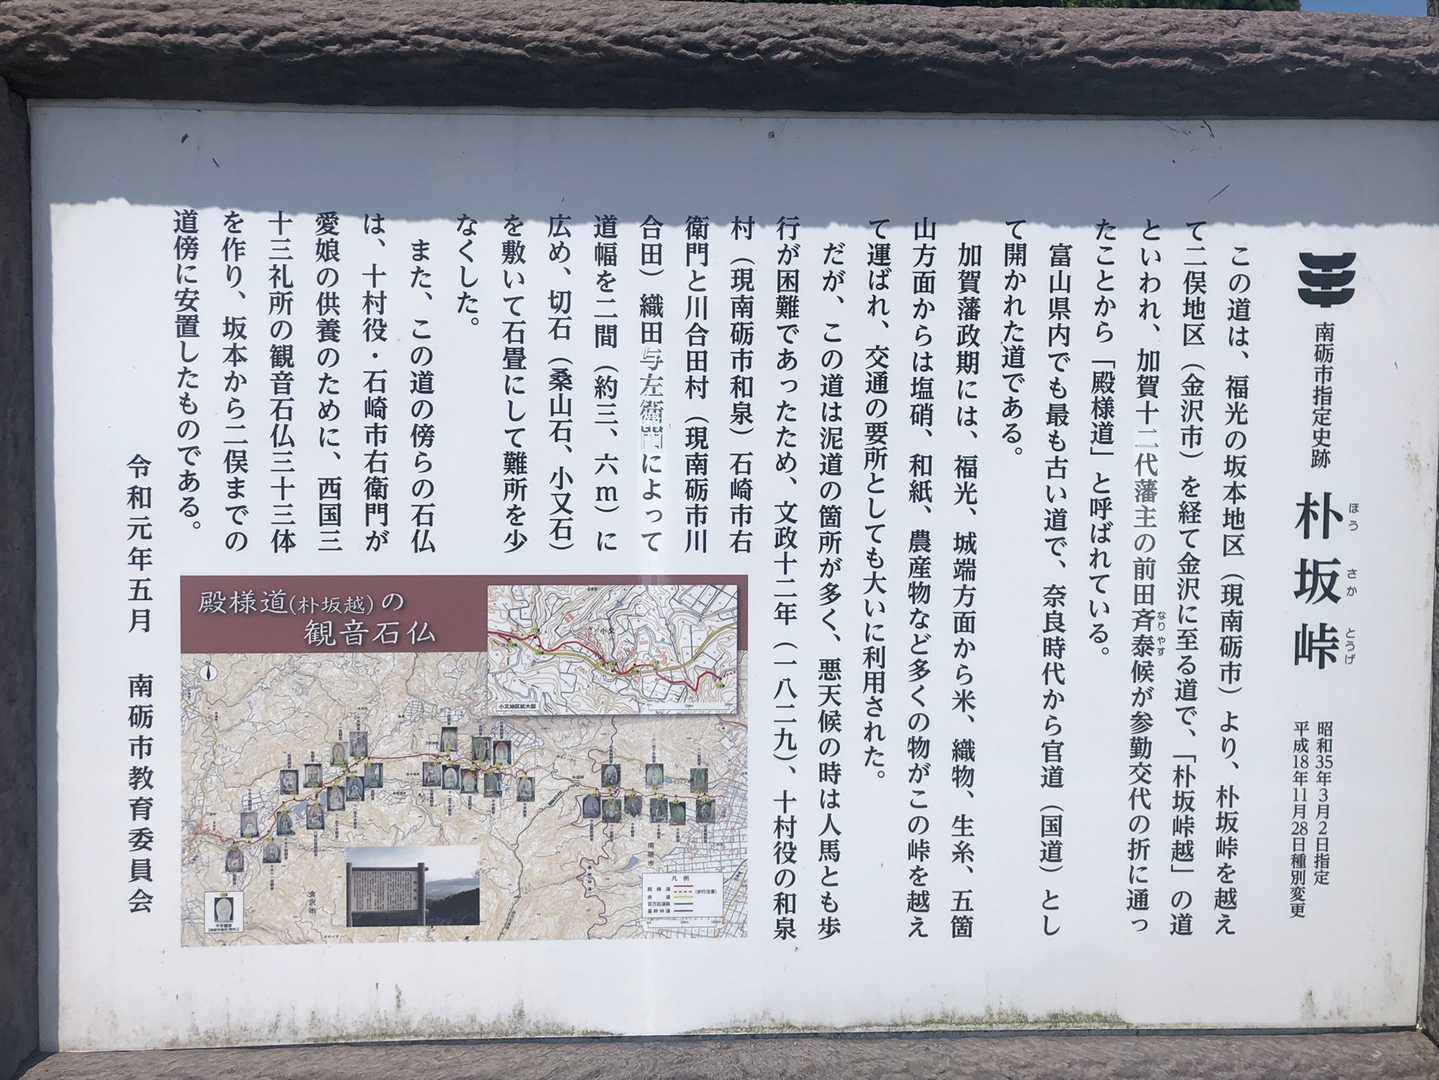 南砺市指定史跡
朴坂峠
ほうさかとうげ
昭和35年3月2日指定
平成18年11月28日種別変更
この道は、福光の坂本地区（現南砺市）より、朴坂峠を越え
て二俣地区（金沢市）を経て金沢に至る道で、「朴坂峠越」の道
といわれ、加賀十二代藩主の前田斉泰候が参勤交代の折に通っ
なりやす
たことから「殿様道」と呼ばれている。
富山県内でも最も古い道で、奈良時代から官道（国道）とし
て開かれた道である。
加賀藩政期には、福光、城端方面から米、織物、生糸、五箇
山方面からは塩硝、和紙、農産物など多くの物がこの峠を越え
て運ばれ、交通の要所としても大いに利用された。
だが、この道は泥道の箇所が多く、悪天候の時は人馬とも歩
行が困難であったため、文政十二年（一八二九）、十村役の和泉
村（現南砺市和泉）石崎市右
衛門と川合田村（現南砺市川
合田）織田与左衛門によって
道幅を二間（約三、六m）に
広め、切石（桑山石、小又石）
を敷いて石畳にして難所を少
なくした。
また、この道の傍らの石仏
は、十村役・石崎市右衛門が
愛娘の供養のために、西国三
十三礼所の観音石仏三十三体
を作り、坂本から二俣までの
道傍に安置したものである。
令和元年五月　南砺市教育委員会
殿様道（朴坂越）の
観音石仏
小又地区拡大図
凡例